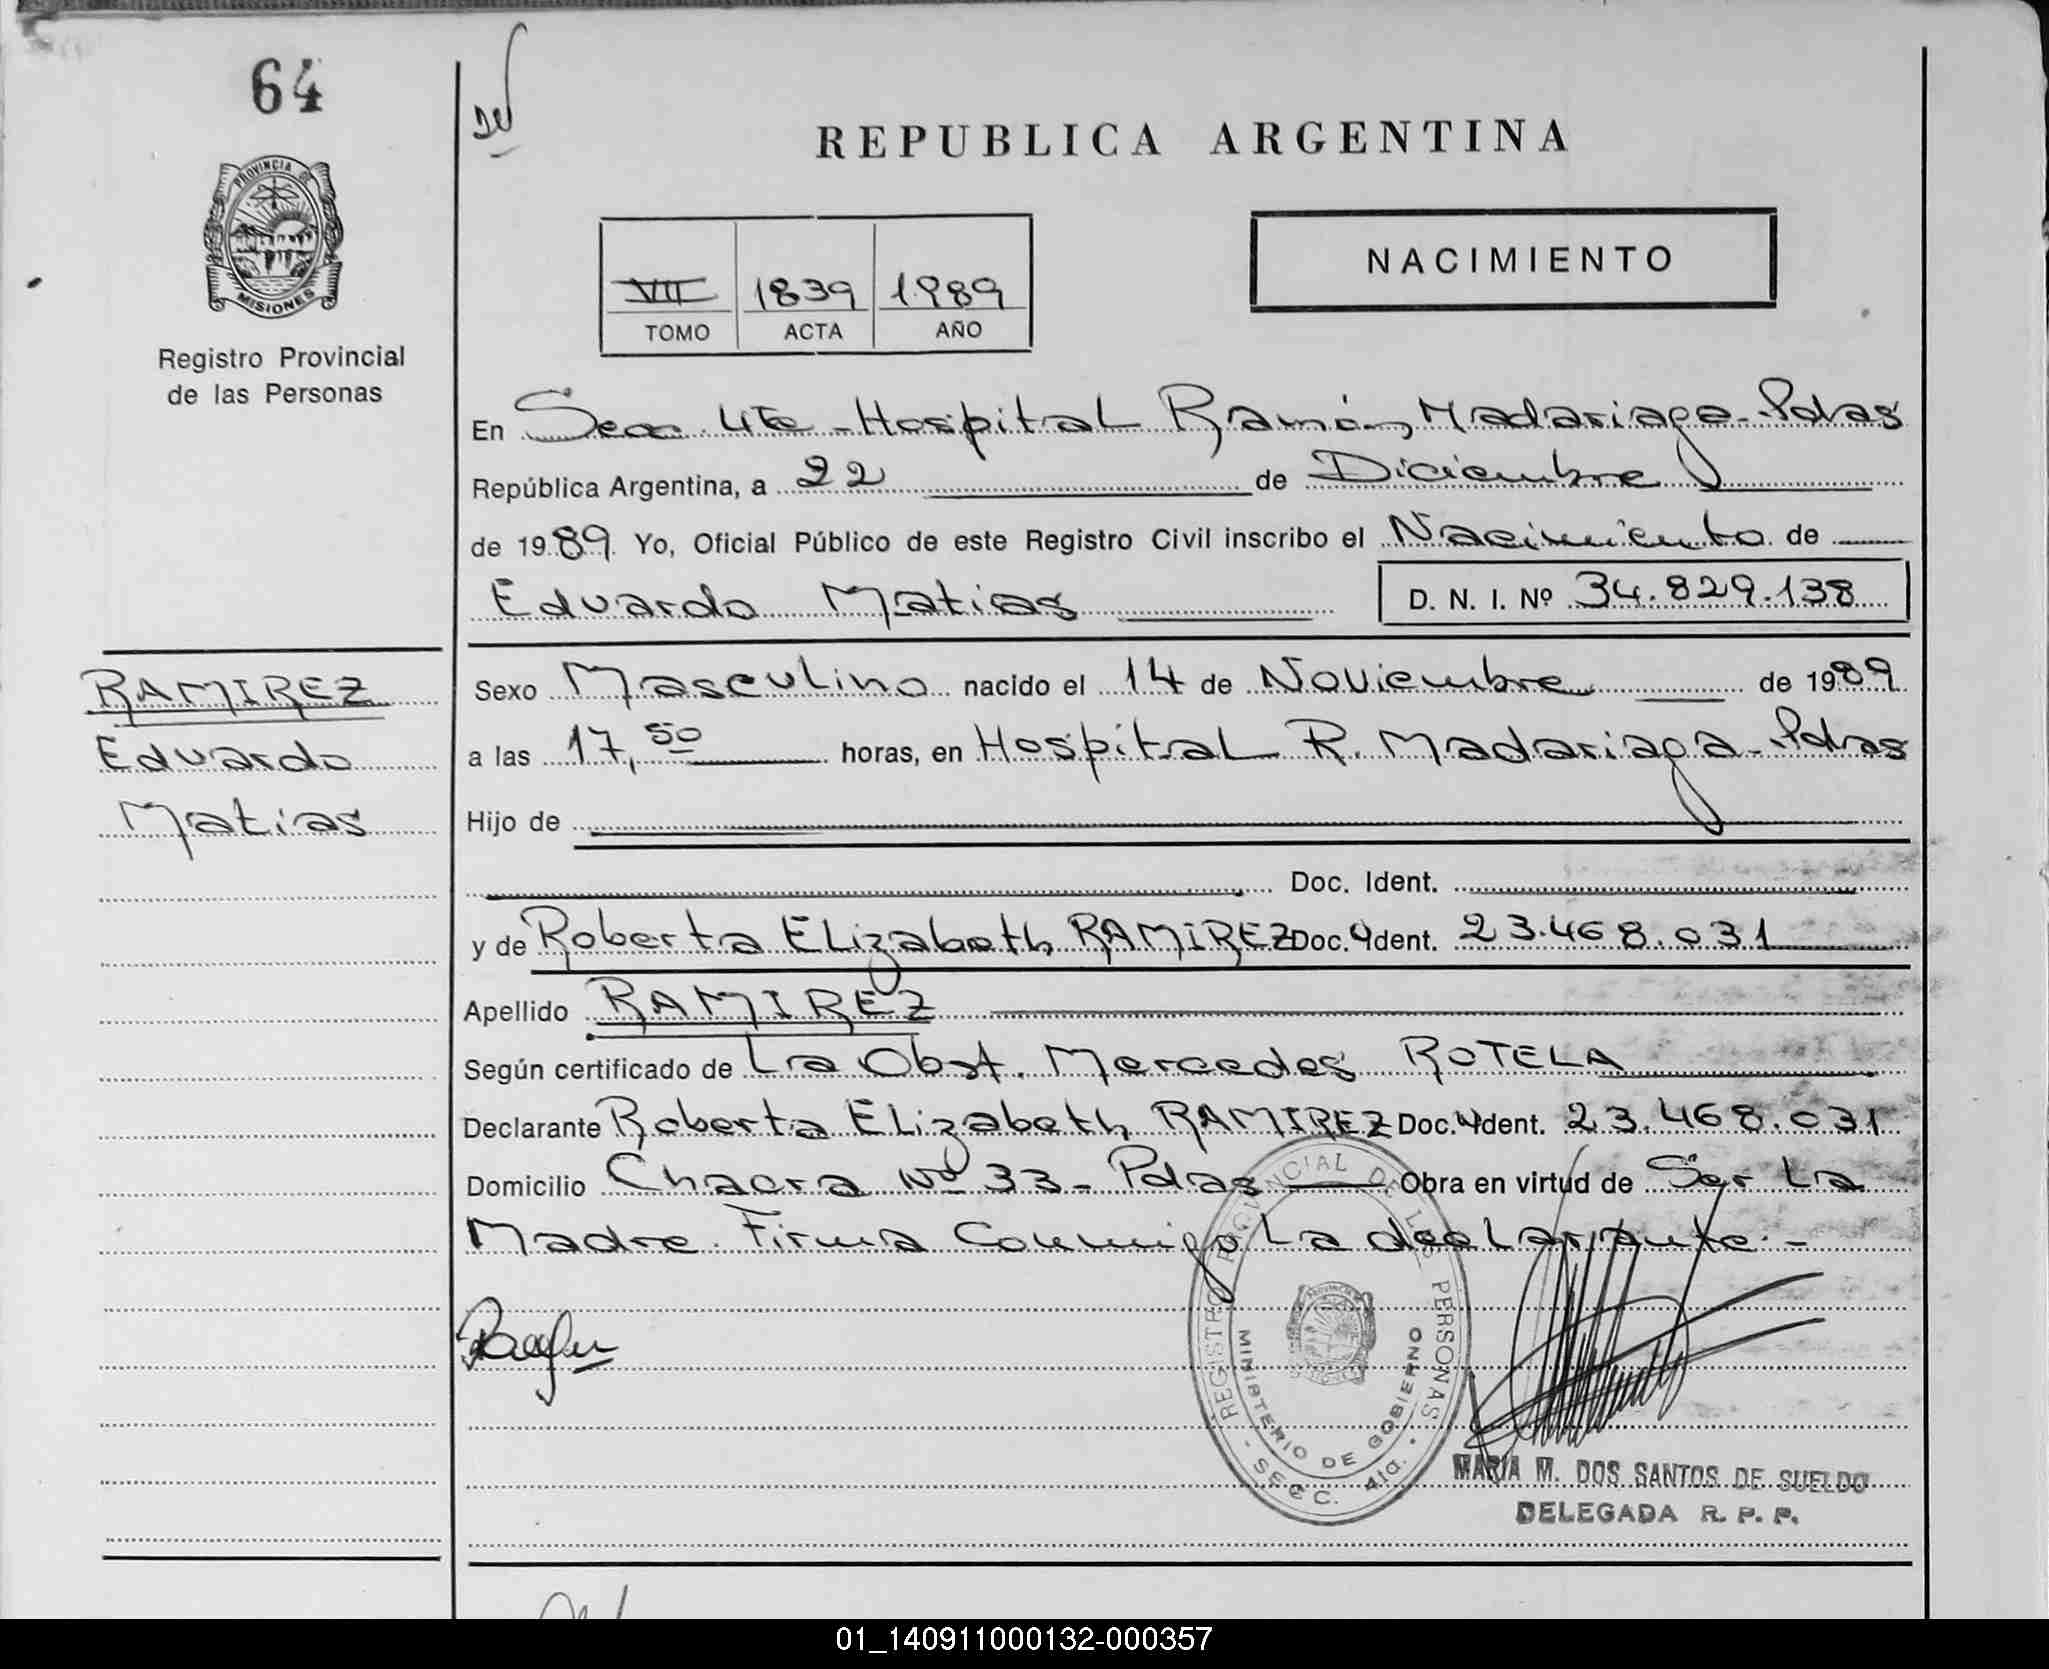 64
PROVINCIA DE
MISIONES
Registro Provincial
de las Personas
REPUBLICA ARGENTINA
NACIMIENTO
VII 1839 1989
TOMO ACTA AÑO
En Secc. 4ta - Hospital Ramón Madariaga - Pdas
República Argentina, a 22 de Diciembre
de 1989 Yo, Oficial Público de este Registro Civil inscribo el Nacimiento de
Eduardo Matias D. N. I. Nº 34.829.138
RAMIREZ
Eduardo
Matias
Sexo Masculino nacido el 14 de Noviembre de 1989
a las 17,50 horas, en Hospital R. Madariaga - Pdas
Hijo de
Doc. Ident.
y de Roberta ELizabeth RAMIREZ Doc. Ident. 23.468.031
Apellido RAMIREZ
Según certificado de La Obst. Mercedes ROTELA
Declarante Roberta ELizabeth RAMIREZ Doc. Ident. 23.468.031
Domicilio Chacra Nº 33 - Pdas Obra en virtud de Ser La
Madre. Firma Conmigo La decLarante.-
REGISTRO PROVINCIAL DE LAS PERSONAS
MINISTERIO DE GOBIERNO
- SECC. 4ta. -
MARIA M. DOS SANTOS DE SUELDO
DELEGADA R. P. P.
01_140911000132-000357